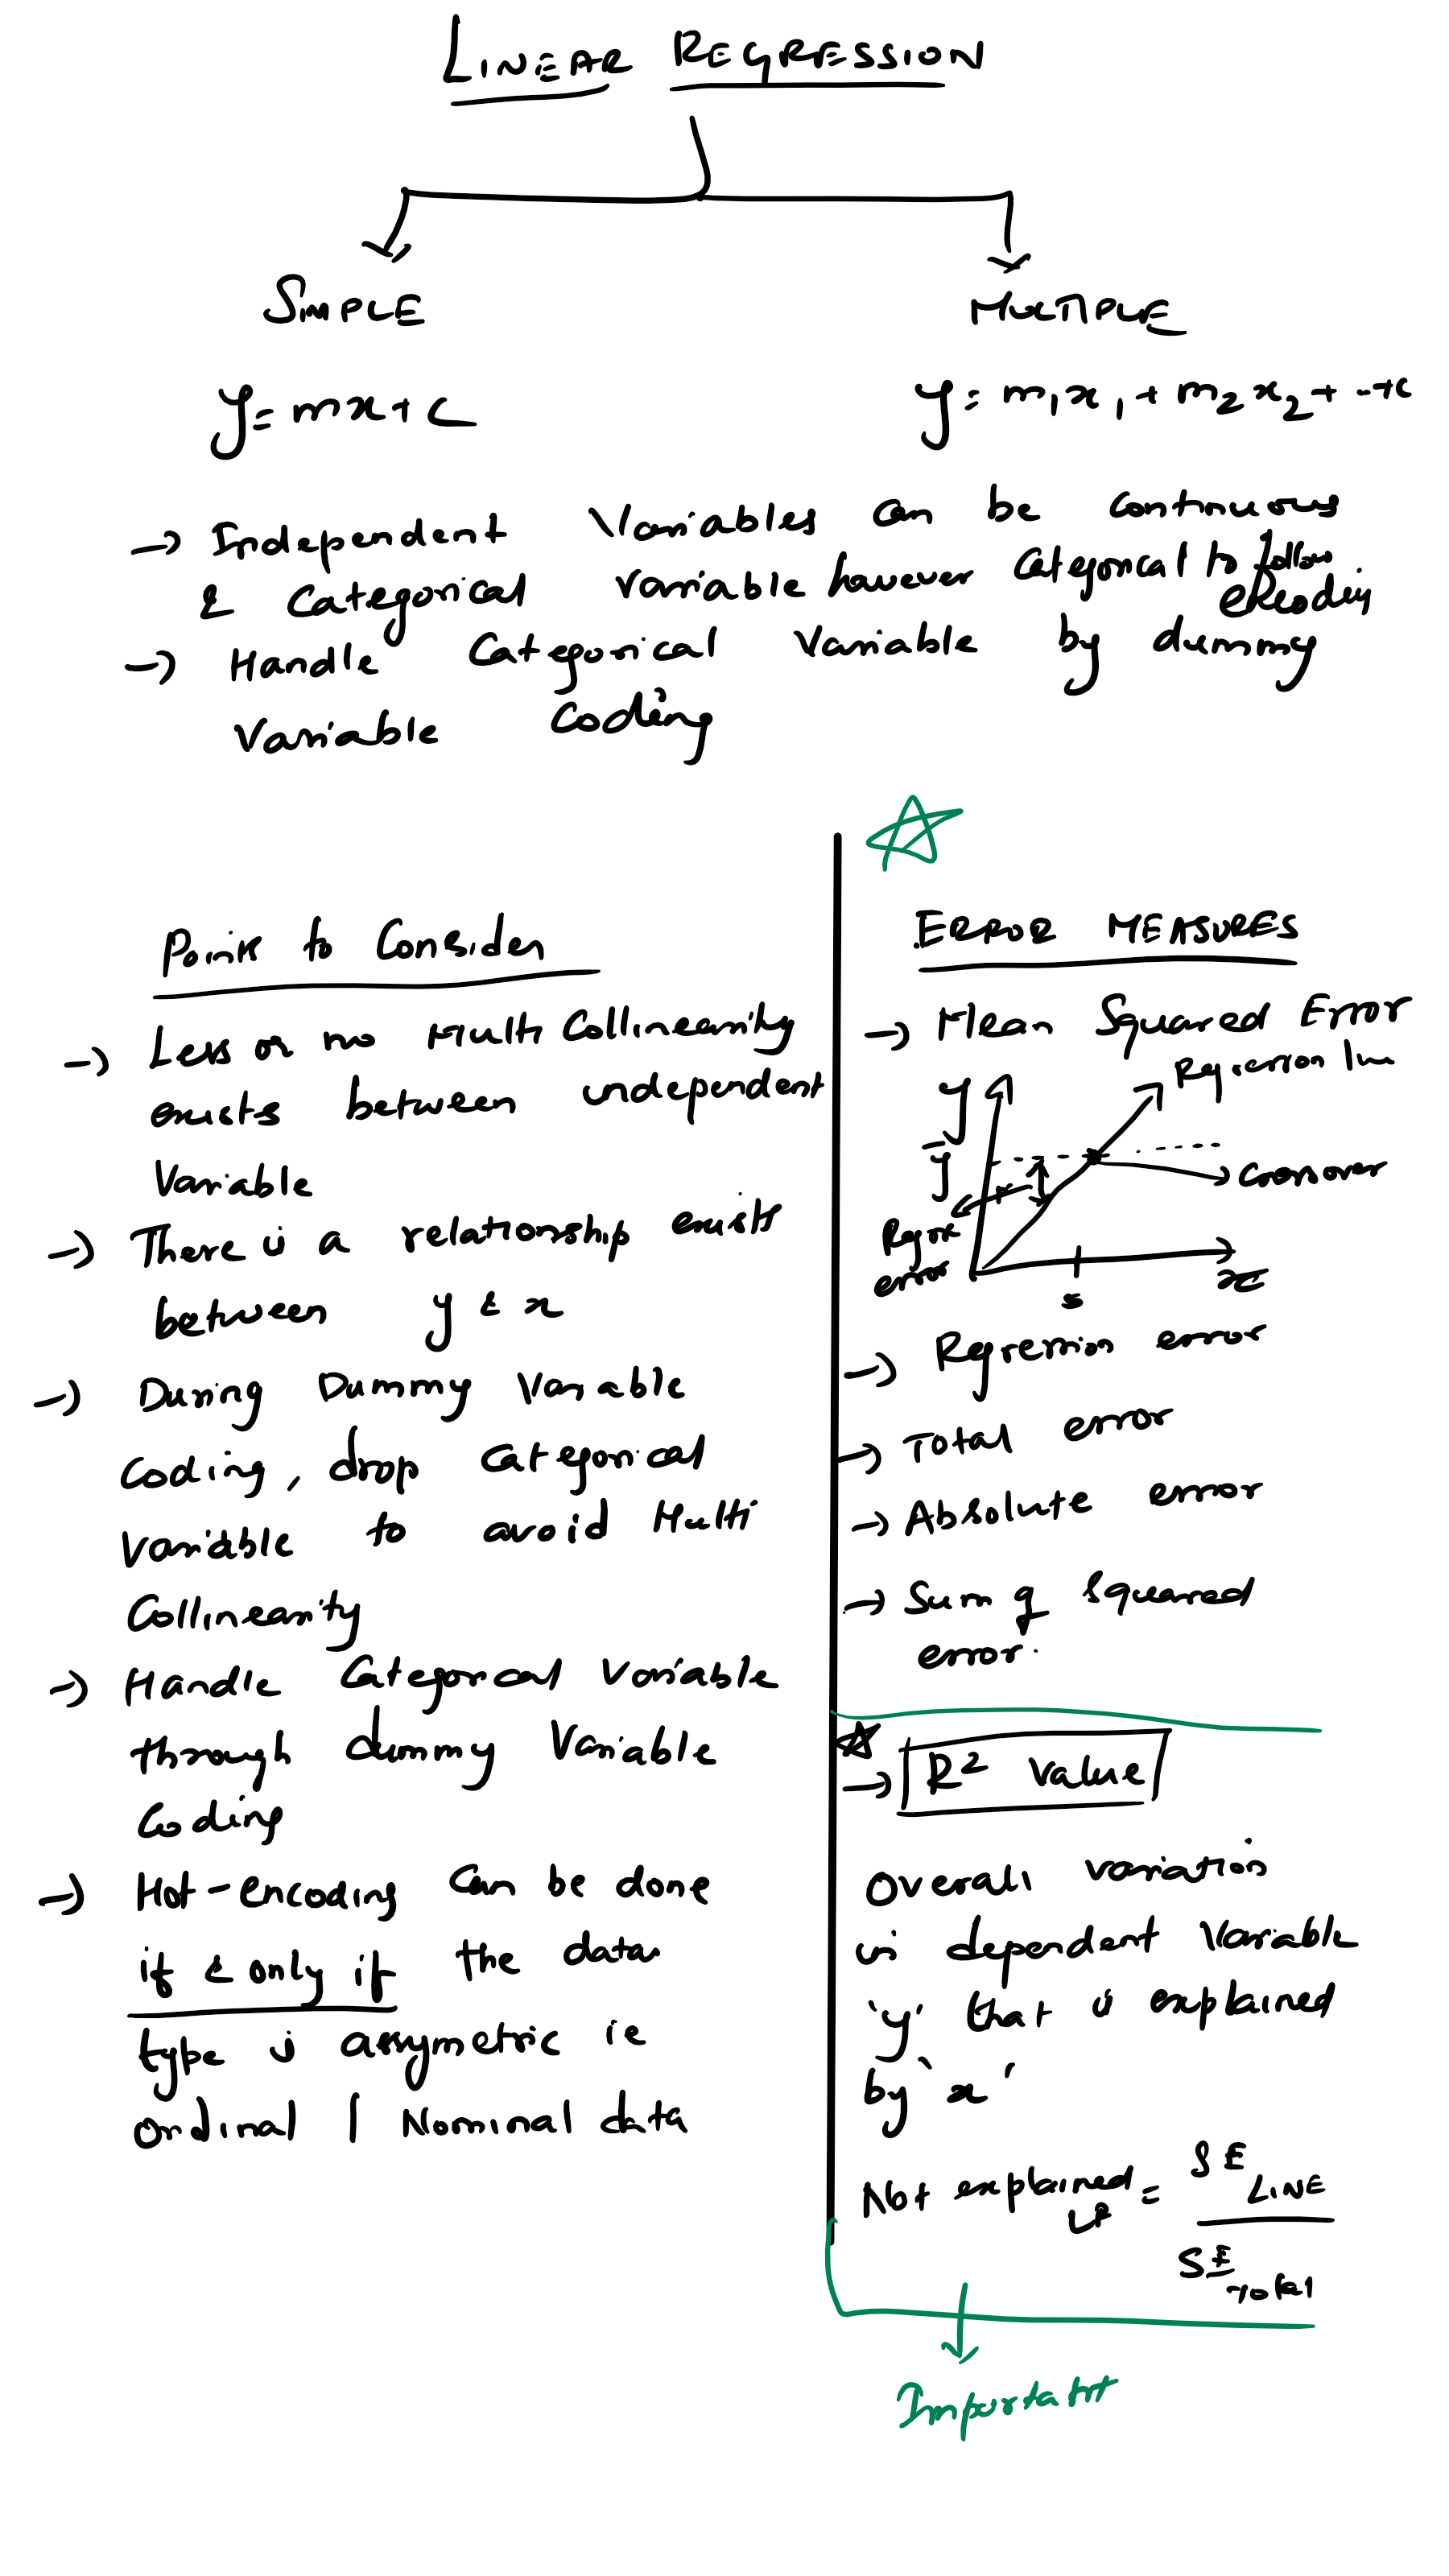 LINEAR REGRESSION
SIMPLE
MULTIPLE
y = mx + c
y = m₁x₁ + m₂x₂ + ..+c
→ Independent Variables can be continuous
& Categorical variable however categorical to follow
encoding
→ Handle Categorical Variable by dummy
Variable coding
Points to Consider
→ Less or no Multi Collinearity
exists between independent
Variable
→ There is a relationship exists
between y & x
→ During Dummy Variable
Coding, drop categorical
variable to avoid Multi
Collinearity
→ Handle Categorical Variable
through dummy Variable
Coding
→ Hot-encoding can be done
if & only if the data
type is assymetric ie
ordinal / Nominal data
ERROR MEASURES
→ Mean Squared Error
Regression line
y
ȳ
Crossover
error
x
→ Regression error
→ Total error
→ Absolute error
→ Sum of squared
error.
→ R² value
Overall variation
in dependent variable
'y' that is explained
by 'x'
Not explained = SE LINE
SE Total
Important